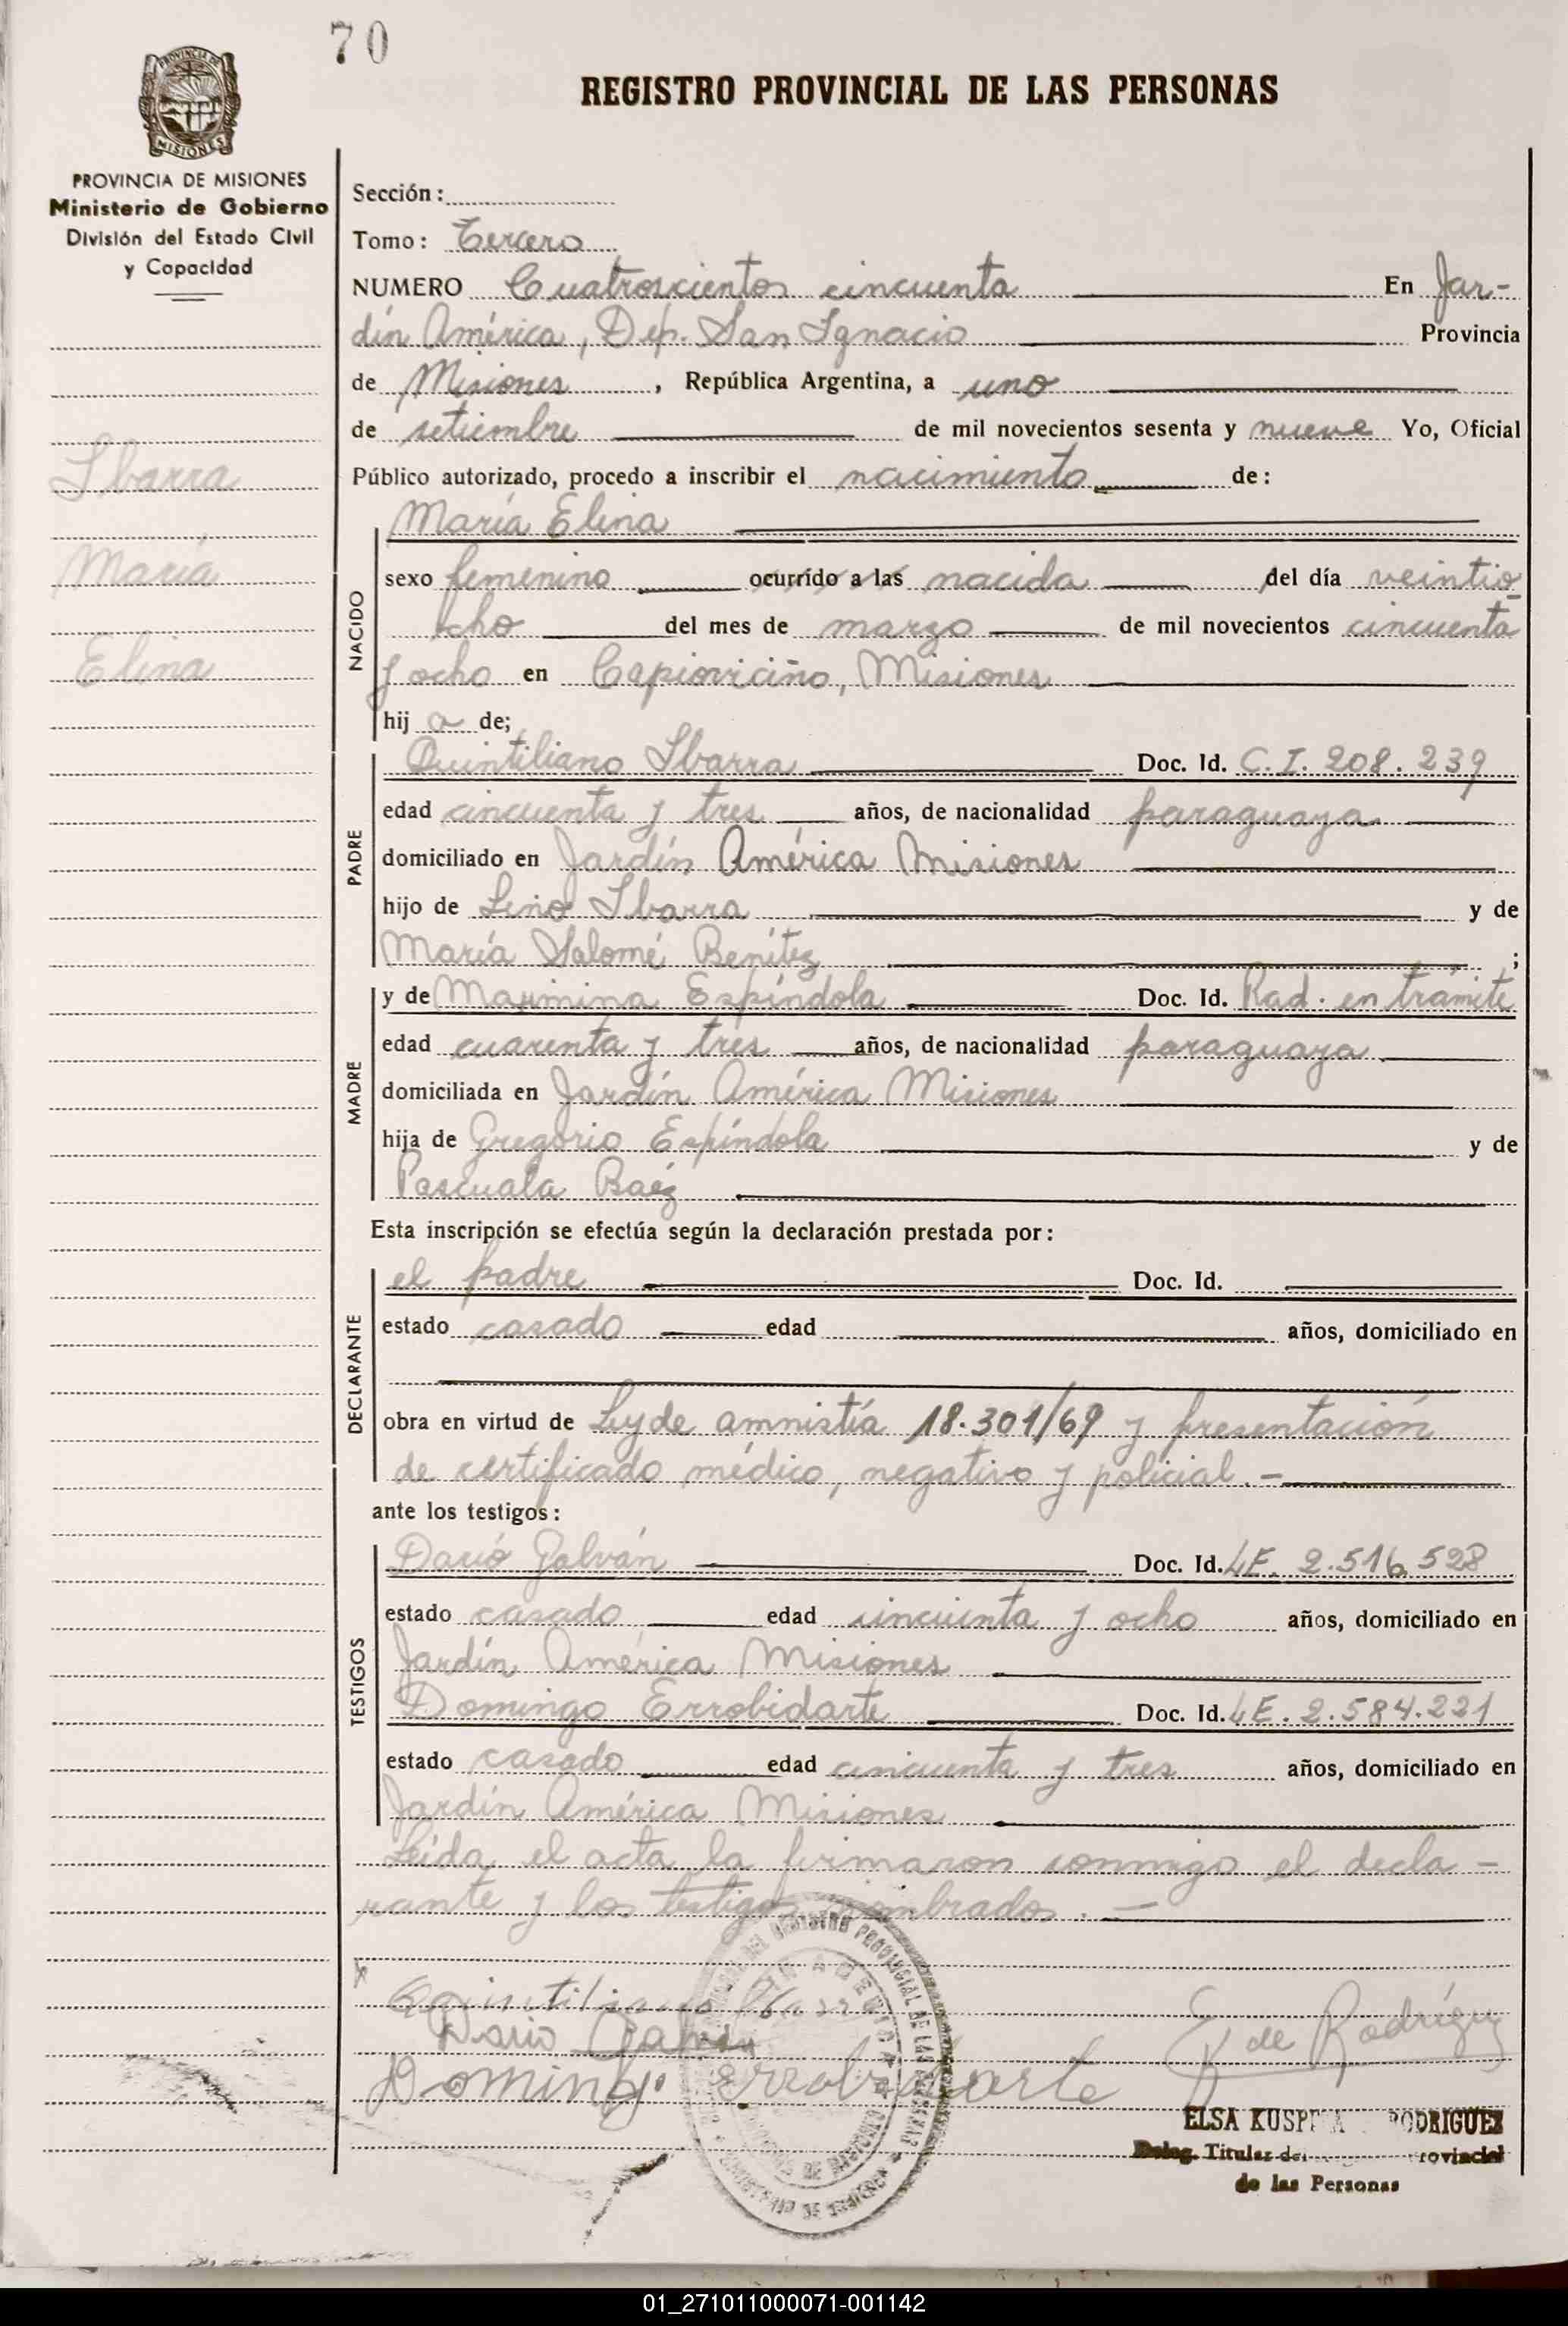 70
REGISTRO PROVINCIAL DE LAS PERSONAS
PROVINCIA DE MISIONES
Ministerio de Gobierno
División del Estado Civil
y Capacidad
Ibarra
María
Elina
Sección:
Tomo: Tercero
NUMERO Cuatroscientos cincuenta En Jar-
dín América, Dep. San Ignacio Provincia
de Misiones, República Argentina, a uno
de setiembre de mil novecientos sesenta y nueve Yo, Oficial
Público autorizado, procedo a inscribir el nacimiento de:
NACIDO
María Elina
sexo femenino ocurrido a las nacida del día veintio-
cho del mes de marzo de mil novecientos cincuenta
y ocho en Capioviciño, Misiones
hij a de;
PADRE
Quintiliano Ibarra Doc. Id. C.I. 208.239
edad cincuenta y tres años, de nacionalidad paraguaya
domiciliado en Jardín América Misiones
hijo de Liño Ibarra y de
María Salomé Benítez ;
MADRE
y de Maximina Espíndola Doc. Id. Rad. en trámite
edad cuarenta y tres años, de nacionalidad paraguaya
domiciliada en Jardín América Misiones
hija de Gregorio Espíndola y de
Pascuala Baéz
Esta inscripción se efectúa según la declaración prestada por:
DECLARANTE
el padre Doc. Id.
estado casado edad años, domiciliado en
obra en virtud de Ley de amnistía 18.301/69 y presentación
de certificado médico, negativo y policial.-
ante los testigos:
TESTIGOS
Darió Galván Doc. Id. LE. 2.516.528
estado casado edad cincuenta y ocho años, domiciliado en
Jardín América Misiones
Domingo Errobidarte Doc. Id. LE. 2.584.221
estado casado edad cincuenta y tres años, domiciliado en
Jardín América Misiones
Leida el acta la firmaron conmigo el decla-
rante y los testigos nombrados.-
Quintiliano Ibarra
Dario Galván
Domingo Errobidarte
E de Rodríguez
ELSA RODRIGUEZ
Deleg. Titular del Provincial
de las Personas
01_271011000071-001142